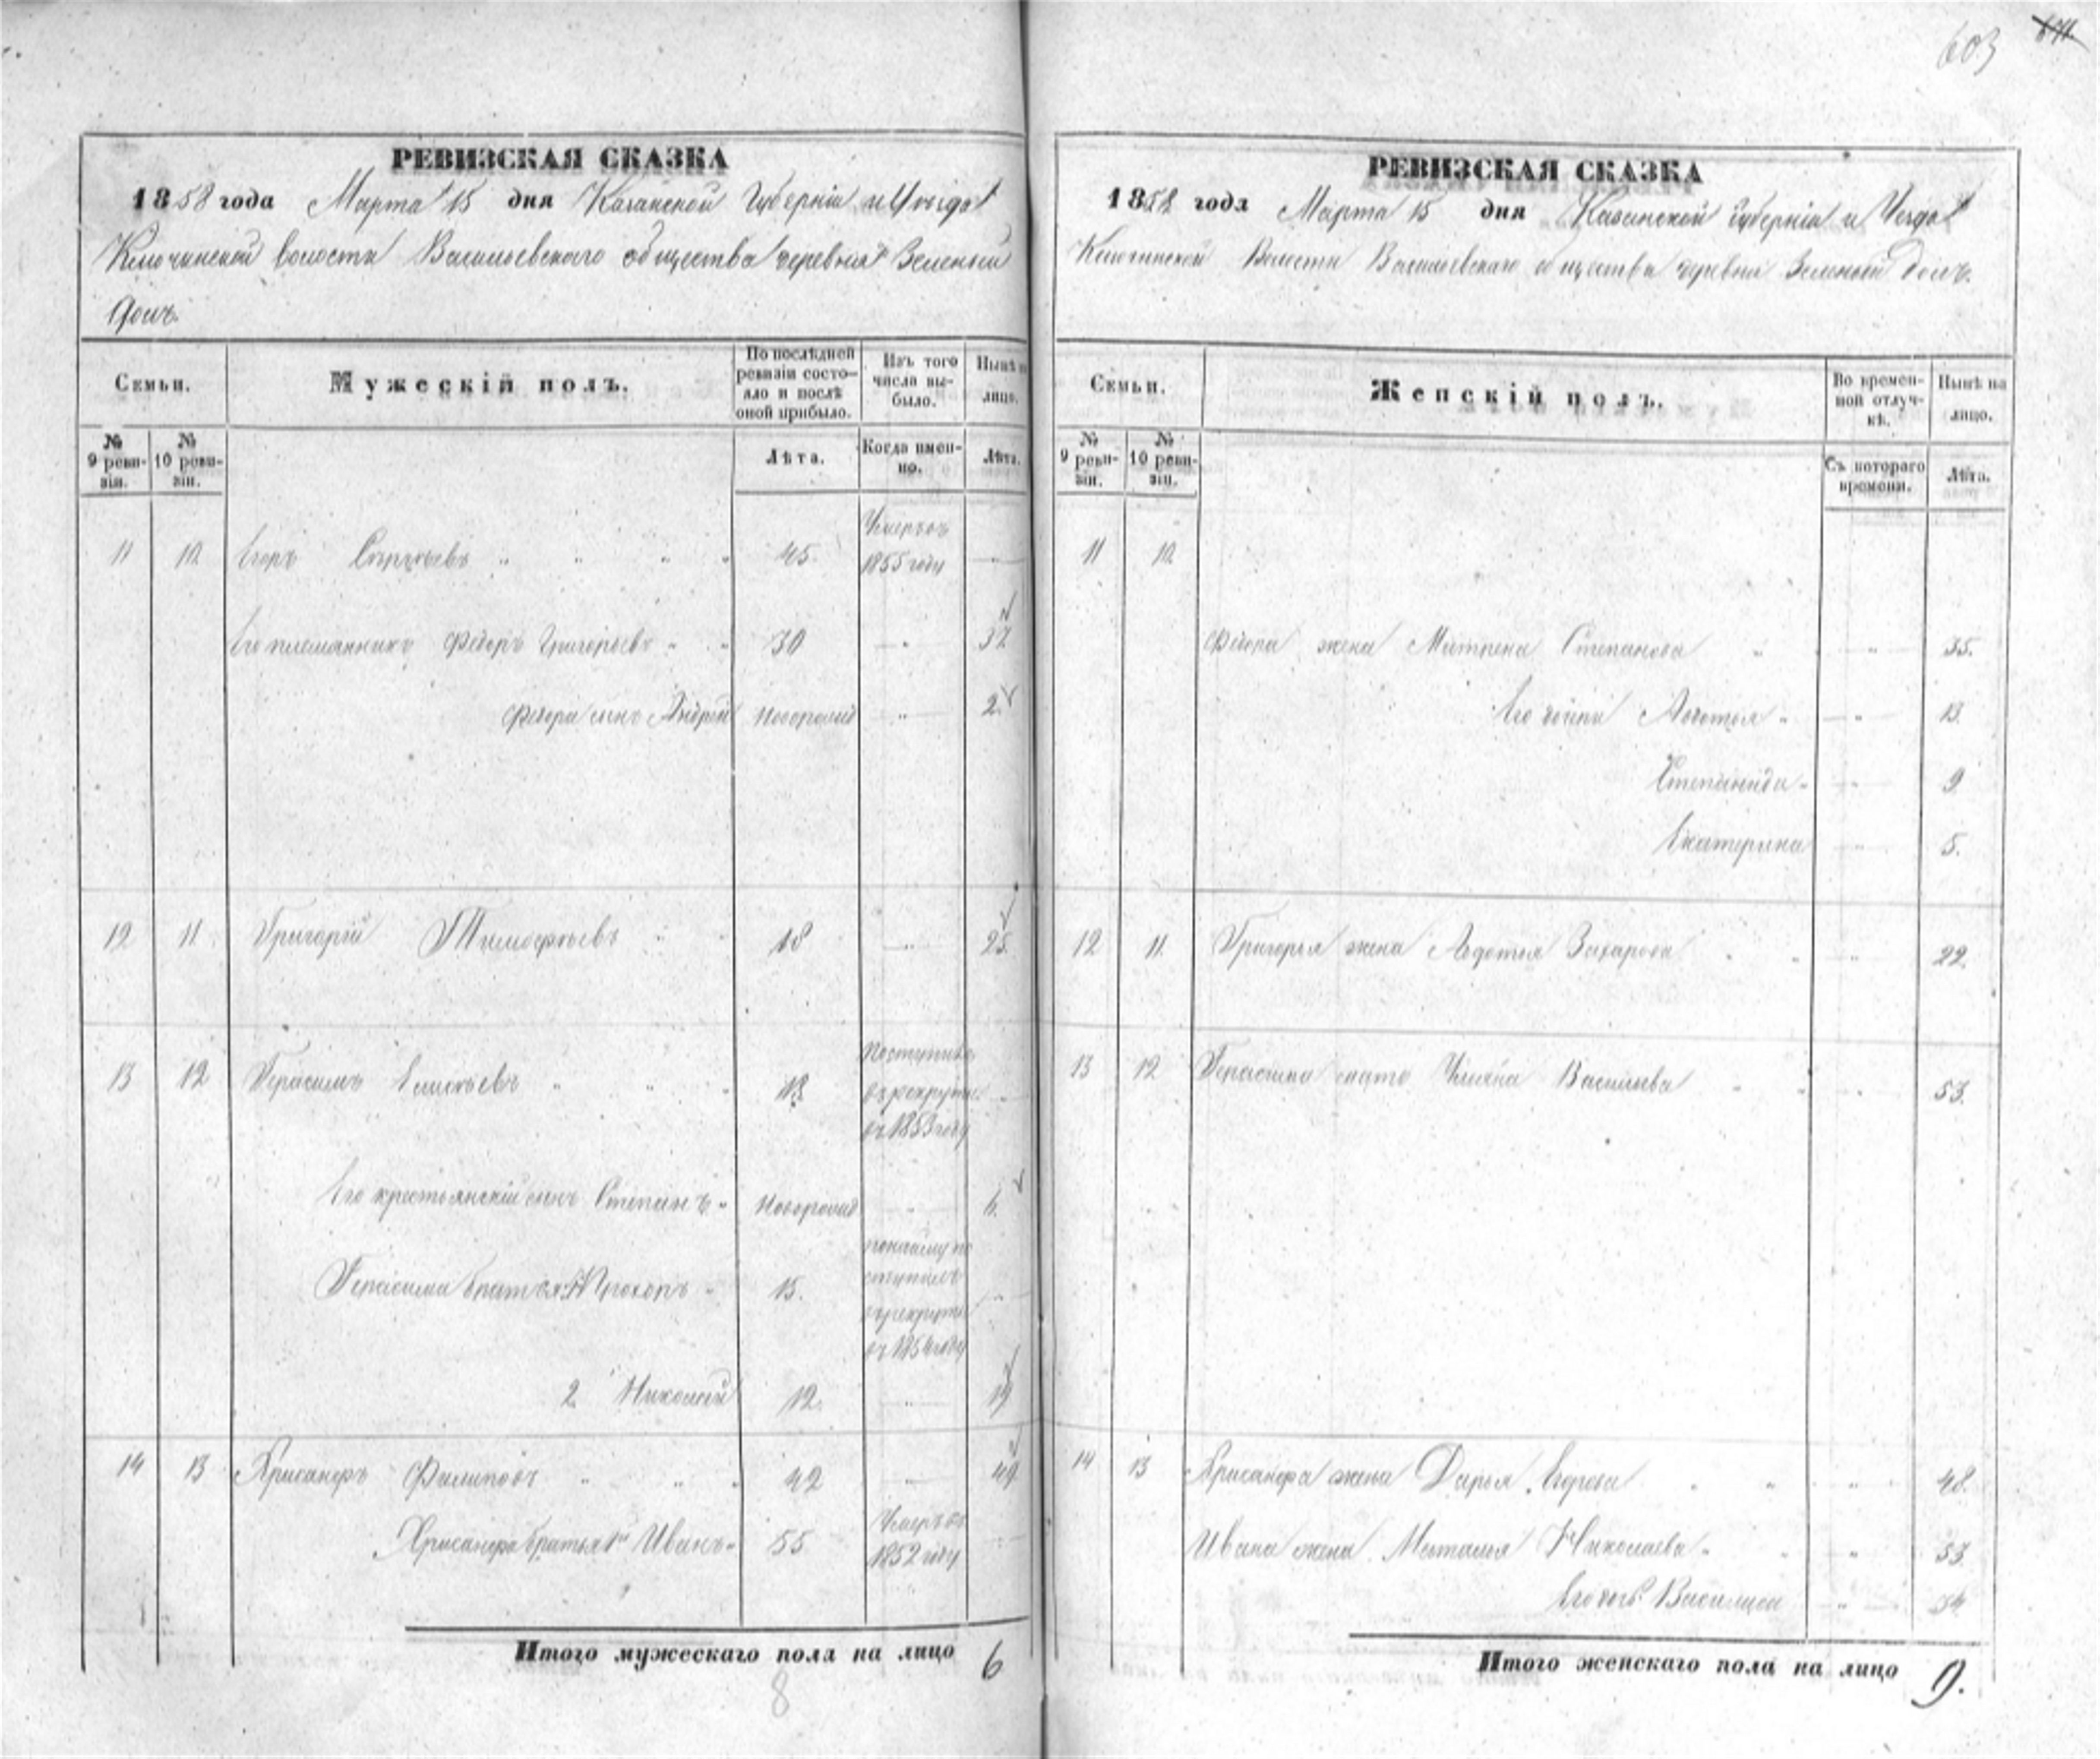 603
РЕВИЗСКАЯ СКАЗКА
1858 года Марта 15 дня Казанской Губернiи и Уѣзда
Ключинской волости Васильевскаго общества деревня Зеленый
Долъ.
Семьи.
Мужескiй полъ.
По послѣдней ревизiи состояло и послѣ оной прибыло.
Изъ того числа выбыло.
Нынѣ на лицо.
№ 9 ревизiи.
№ 10 ревизiи.
Лѣта.
Когда именно.
Лѣта.
11 10 Егоръ Сергѣевъ 45. Умеръ въ 1855 году
Его племянникъ Федоръ Григорьевъ 30 37
Федора сынъ Андрей Новорожд 2
12 11 Григорiй Тимофѣевъ 18 25.
13 12 Герасимъ Елисѣевъ 18 Поступилъ въ рекруты въ 1853 году
Его крестьянскiй сынъ Степанъ Новорожд 6.
Герасима братья 1й Прохоръ 15. по найму поступилъ въ рекруты въ 1854 году
2 Николай 12. 19
14 13 Хрисанфъ Филиповъ 42 49
Хрисанфа братья 1й Иванъ 55 Умеръ въ 1852 году
Итого мужескаго пола на лицо 6
8
РЕВИЗСКАЯ СКАЗКА
1858 года Марта 15 дня Казанской Губернiи и Уѣзда
Ключинской Волости Васильевскаго общества деревни Зеленый Долъ.
Семьи.
Женскiй полъ.
Во временной отлучкѣ.
Нынѣ на лицо.
№ 9 ревизiи.
№ 10 ревизiи.
Съ котораго времени.
Лѣта.
11 10
Федора жена Матрена Степанова 35.
Его дочери Авдотья 13.
Степанида 9
Екатерина 5.
12 11. Григорья жена Авдотья Захарова 22.
13 12 Герасима мать Ульяна Васильева 53.
14 13 Хрисанфа жена Дарья Егорова 48.
Ивана жена Наталья Николаева 53.
Его дочь Василиса
Итого женскаго пола на лицо 9.